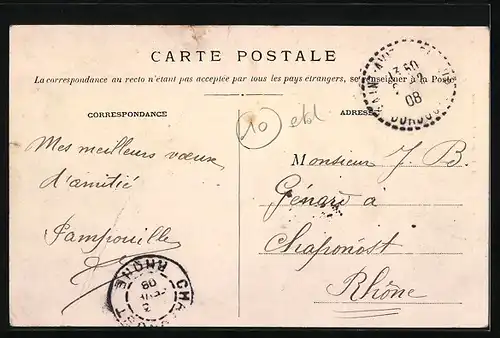 CARTE POSTALE
La correspondance au recto n'étant pas acceptée par tous les pays étrangers, se renseigner à la Poste
CORRESPONDANCE
ADRESSE
10
Mes meilleurs vœux
d'amitié
Monsieur J. B.
Génard à
Chaponost
Rhône
08
RHONE
08